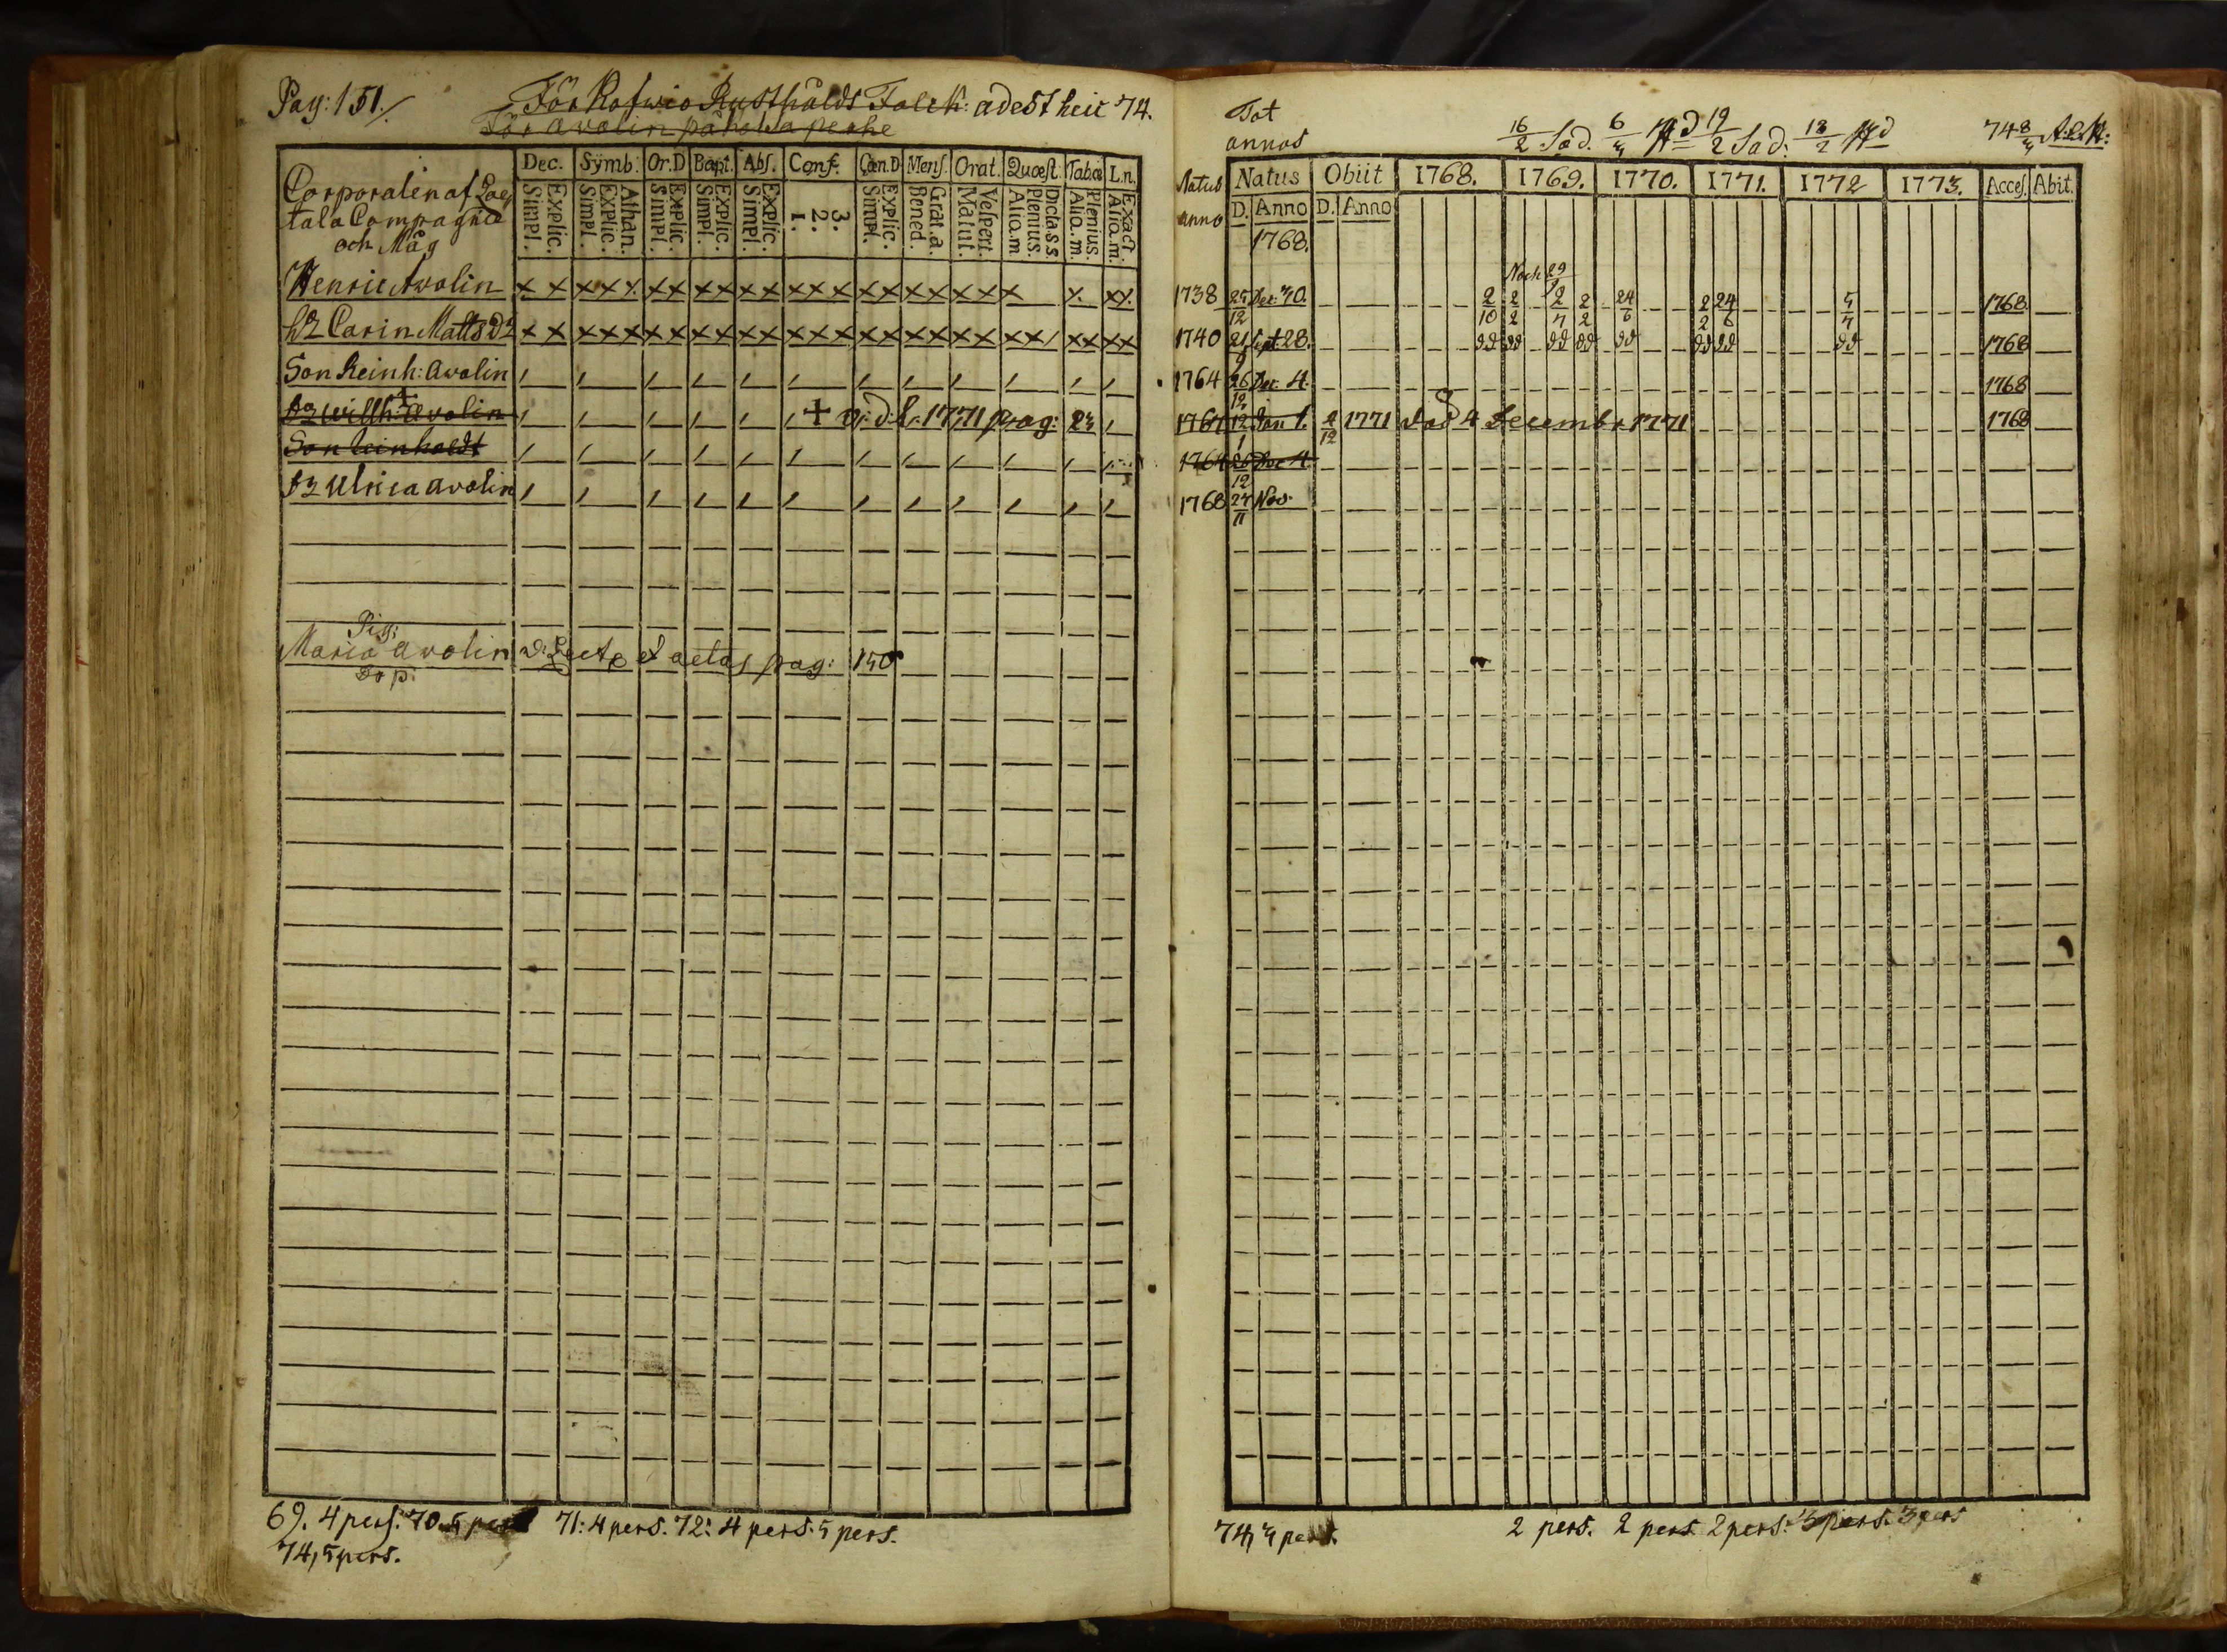 Pag: 151./
För Rafwio Rusthålds Folck: adest heic 74.
För Avolin på holsa perhe
Dec. Symb: Or.D Bapt. Abs. Conf. Cœn.D Mens. Orat. Quæst. Tabæ L.n.
Simpl. Explic. Simpl. Explic. Athan. Simpl. Explic. Simpl. Explic. Simpl. Explic. 1. 2. 3. Simpl. Explic. Bened. Grat.a. Matut. Vespert. Alio.m. Plenius. Dicta s s. Alio.m. Plenius. Alio.m. Exact.
Corporalen af Loe,
tala Compagnie
och Måg
Henric Avolin
h? Carin Matts d?
Son Reinh: Avolin
Willh: Avolin + v: d: l: 1771 pag: 23
Son Reinholdt
Ulrica Avolin
Pig:
Maria Avolin v: Lect. et aetas pag: 150
69. 4 pers. 70. 5 pers 71: 4 pers. 72: 4 pers. 5 pers.
74, 5 pers.
Tot
annos
16/2 Sad. 6/4 19/2 Sad: 18/2
74 8/4
Natus
anno
Natus Obiit 1768. 1769. 1770. 1771. 1772 1773. Acces. Abit.
D. Anno D. Anno
1768.
Noch 29
1738 25/12 Dec. 30. 2/10 2/2 2/4 2/2 24/6 2/2 24/6 5/4 1768.
1740 21/9 Sept 28. dd dd dd dd dd dd dd dd 1768
1764 26/12 Dec. 4. 1768
1767 12/1 Jan 1. 2/12 1771 död 4 Decembr 1771 1768
1764 26/12 Dec 4
1768 24/11 Nov.
74, 4 pers.
2 pers. 2 pers. 2 pers. 3 pers. 3 pers